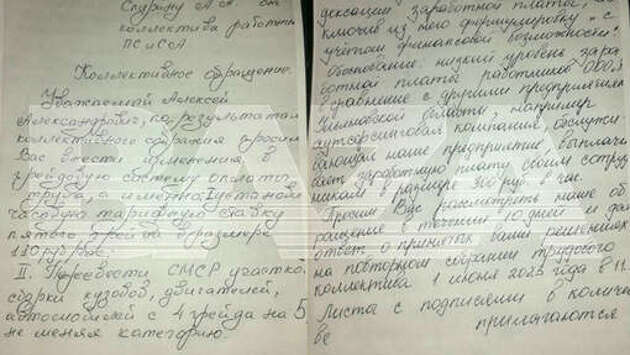 Спурину А.А. от
коллектива работни
ПС и СА
Коллективное обращение.
Уважаемый Алексей
Александрович, по результатам
коллективного собрания просим
Вас внести изменения в
грейдовую систему оплаты
труда, а именно: I установ
часовую тарифную ставку
пятого грейда в размере
II. Перевести СМСР участко
сварки кузовов, двигателей,
с 4 грейда на 5,
не меняя категорию.
дексации заработной платы,
ключив из него формулировку "с
учётом финансовой возможности".
Обоснование: низкий уровень зара
ботной платы работников ООО
в сравнение с другими предприятиями
области, например
аутсорсинговая компания, обслужи
вающая наше предприятие, выплачи
вает заработную плату своим сотруд
никам в размере руб. в час.
Просим Вас рассмотреть наше об
ращение в течении 10 дней и дать
ответ о принятых вами решениях
на повторном собрании трудового
коллектива 1 июня 2023 года в 11
Листы с подписями в количе
ве прилагаются
BAZA